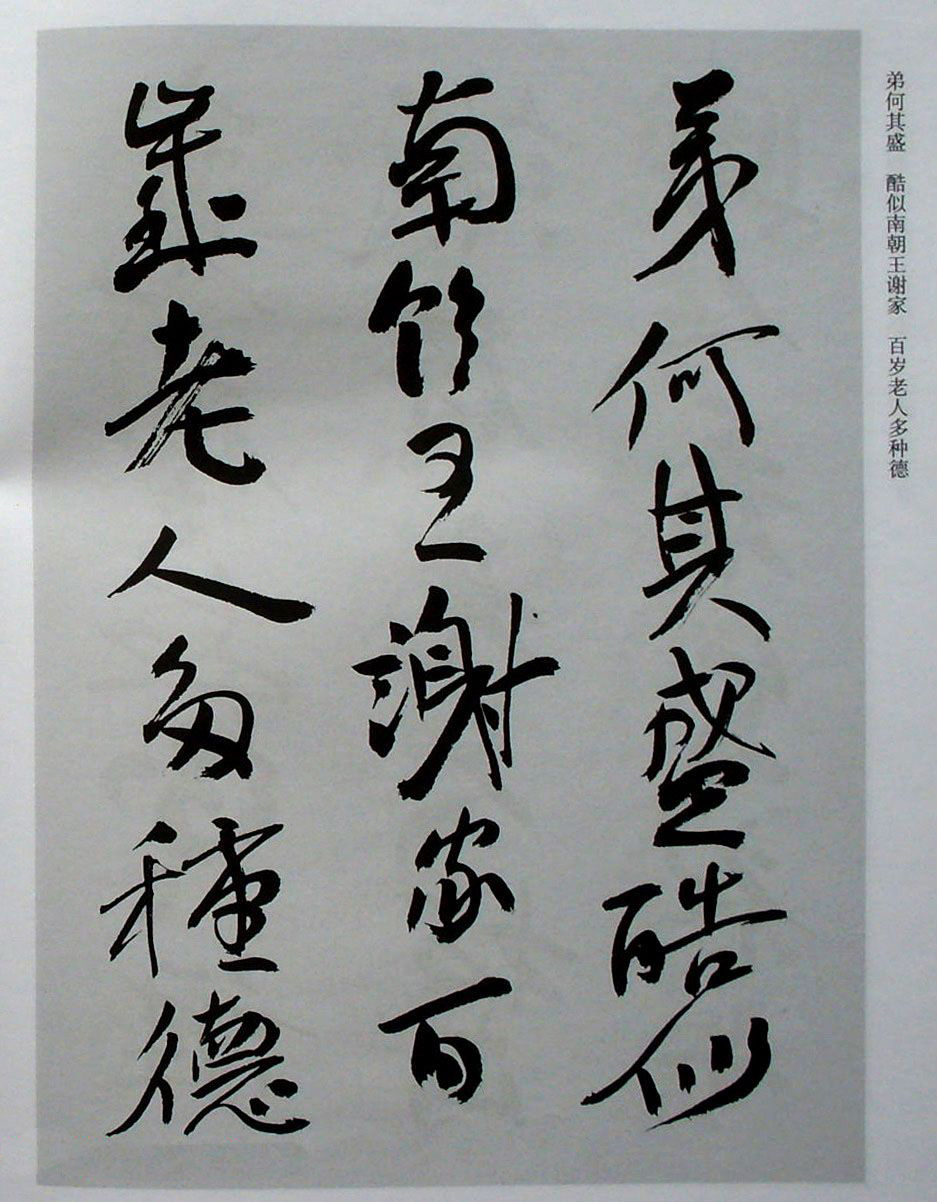 弟何其盛　酷似南朝王谢家　百岁老人多种德
弟何其盛酷似
南朝王謝家百
歲老人多種德